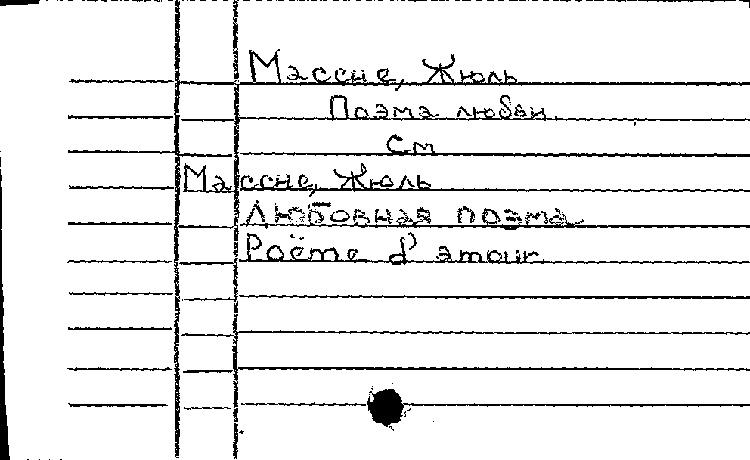 Массне, Жюль
Поэма любви.
См
Массне, Жюль
Любовная поэма
Poёme d'amour.